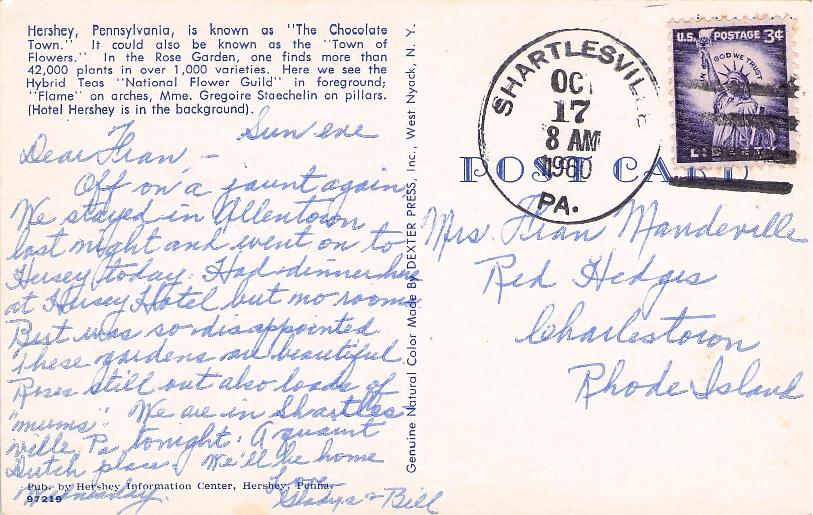 Hershey, Pennsylvania, is known as "The Chocolate
Town." It could also be known as the "Town of
Flowers." In the Rose Garden, one finds more than
42,000 plants in over 1,000 varieties. Here we see the
Hybrid Teas "National Flower Guild" in foreground;
"Flame" on arches, Mme. Gregoire Staechelin on pillars.
(Hotel Hershey is in the background).
Sun eve
Dear Fran, -
Off on a jaunt again.
We stayed in Allentown
last night and went on to
Hersey today. Had dinner here
at Hersey Hotel but no rooms
But was so disappointed.
These gardens are beautiful.
Roses still out also loads of
"mums". We are in Shartles-
ville, Pa. tonight: A quaint
Dutch place. We'll be home
Wednesday.
Love
Gladys & Bill
Pub. by Hershey Information Center, Hershey, Penna.
97219
Genuine Natural Color Made By DEXTER PRESS, Inc., West Nyack, N. Y.
POST CARD
SHARTLESVILLE
OCT
17
8 AM
1960
PA.
U.S. POSTAGE 3¢
IN GOD WE TRUST
LIBERTY
Mrs. Fran Mandeville
Red Hedges
Charlestown
Rhode Island